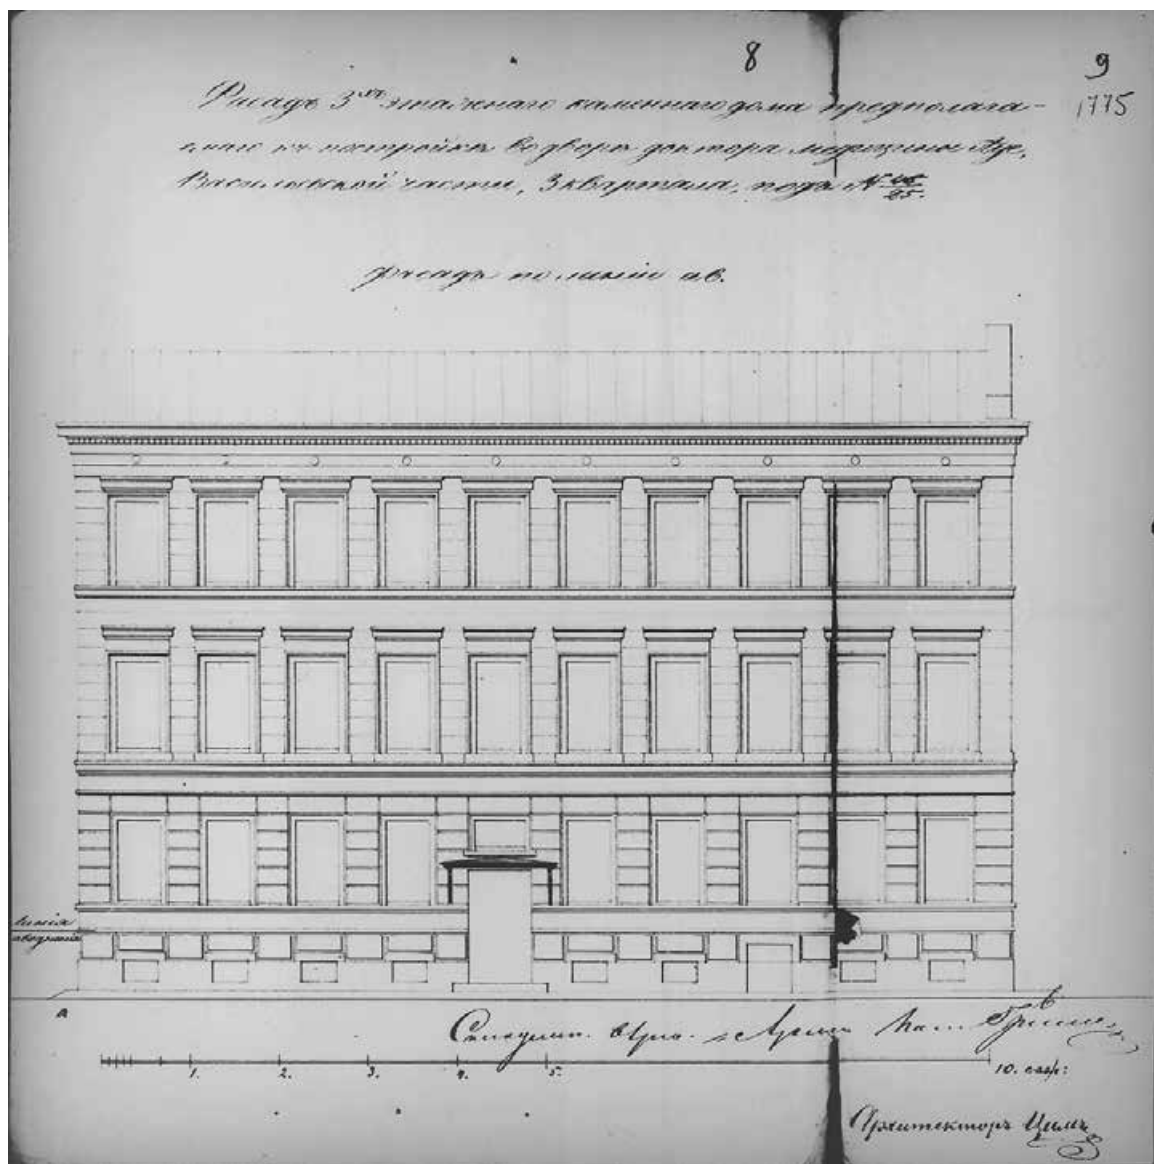 8
9
1775
Фасадъ 3хъ этажнаго каменнаго дома предполага-
емаго къ постройкѣ во дворѣ доктора медицины
Васильевской части, 3 квартала, подъ №
25.
Фасадъ по линіи ав.
Линія
наводненія
А
в
1. 2. 3. 4. 5. 10. саж:
Архитекторъ